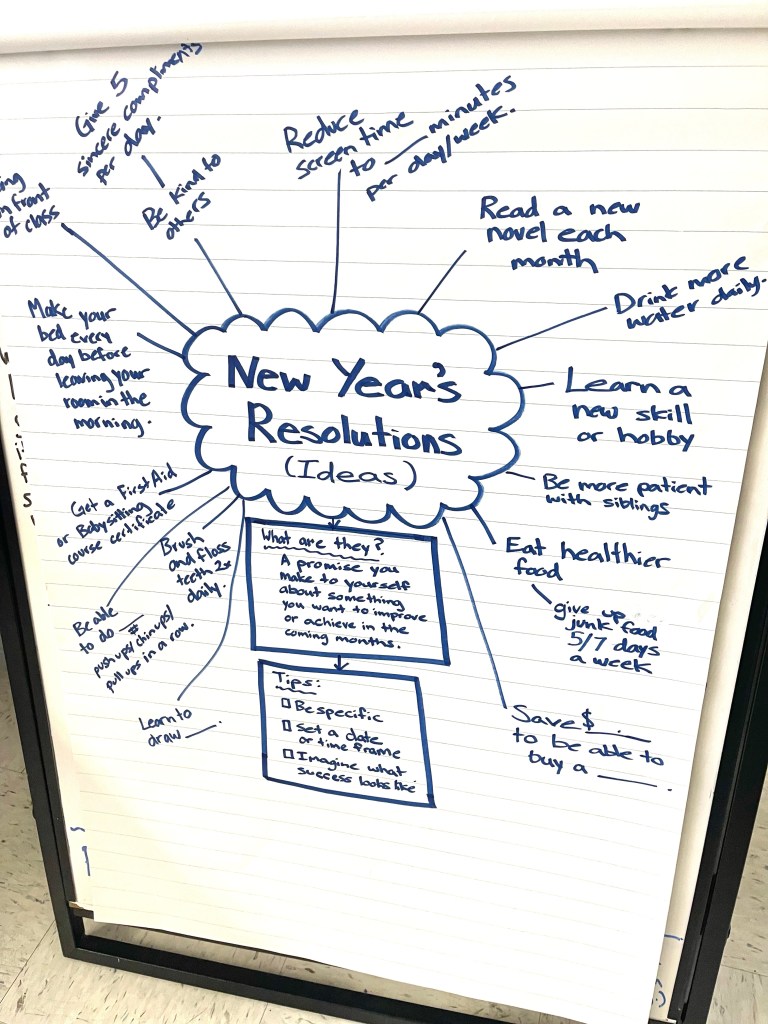 Give 5
sincere compliments
per day.
Be kind to
others
Reduce
screen time
to ___ minutes
per day/week.
Read a new
novel each
month
Drink more
water daily.
Learn a
new skill
or hobby
Be more patient
with siblings
Eat healthier
food
give up
junk food
5/7 days
a week
Save $ ___
to be able to
buy a ___.
New Year's
Resolutions
(Ideas)
What are they?
A promise you
make to yourself
about something
you want to improve
or achieve in the
coming months.
Tips:
Be specific
set a date
or time frame
Imagine what
success looks like
of class
Make your
bed every
day before
leaving your
room in the
morning.
Get a First Aid
or Babysitting
course certificate
Brush
and floss
teeth 2x
daily.
Be able
to do ___
#
pushups/chinups/
pullups in a row.
Learn to
draw ___.